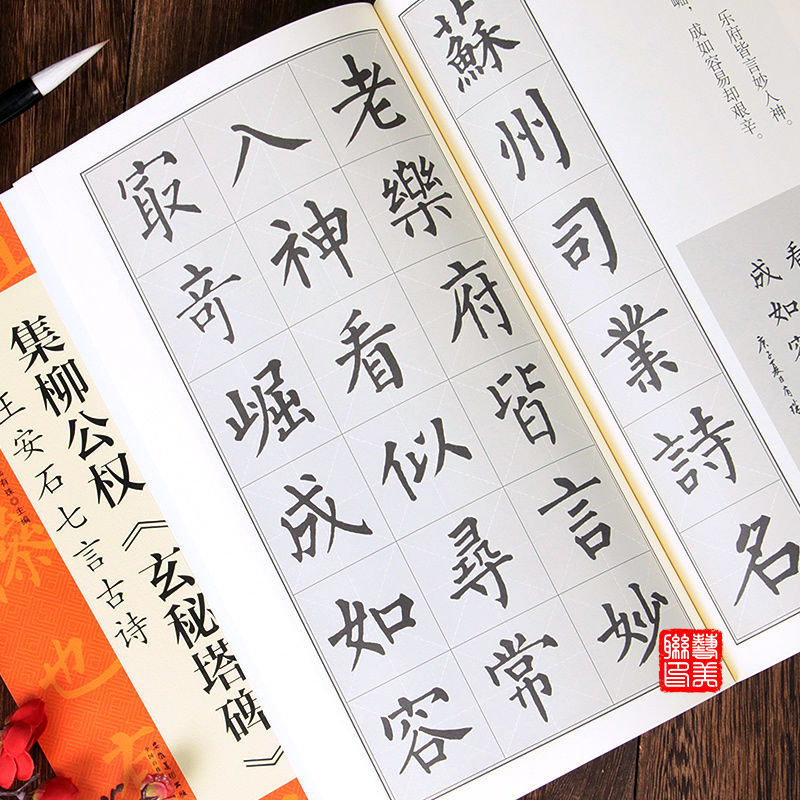 乐府皆言妙入神。
崛，成如容易却艰辛。
看
成如
蘇州司業詩名
老樂府皆言妙
入神看似尋常
㝡奇崛成如容
集柳公权《玄秘塔碑》
王安石七言古诗
主编
藝美